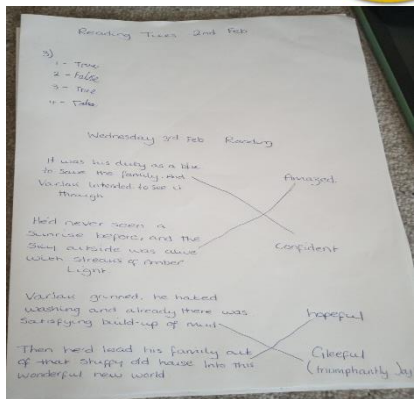 Reading Tues 2nd Feb
3)
1 - True
2 - False
3 - True
4 - False
Wednesday 3rd Feb Reading
It was his duty as a blue
to save the family. And
Varjak intended to see it
through
Amazed
He'd never seen a
Sunrise before, and the
sky outside was alive
with streaks of amber
Light
Confident
Varjak grinned. he hated
washing and already there was
Satisfying build-up of
hopeful
Then he'd lead his family out
of that stuffy old house into this
wonderful new world
Gleeful
(triumphantly Joy